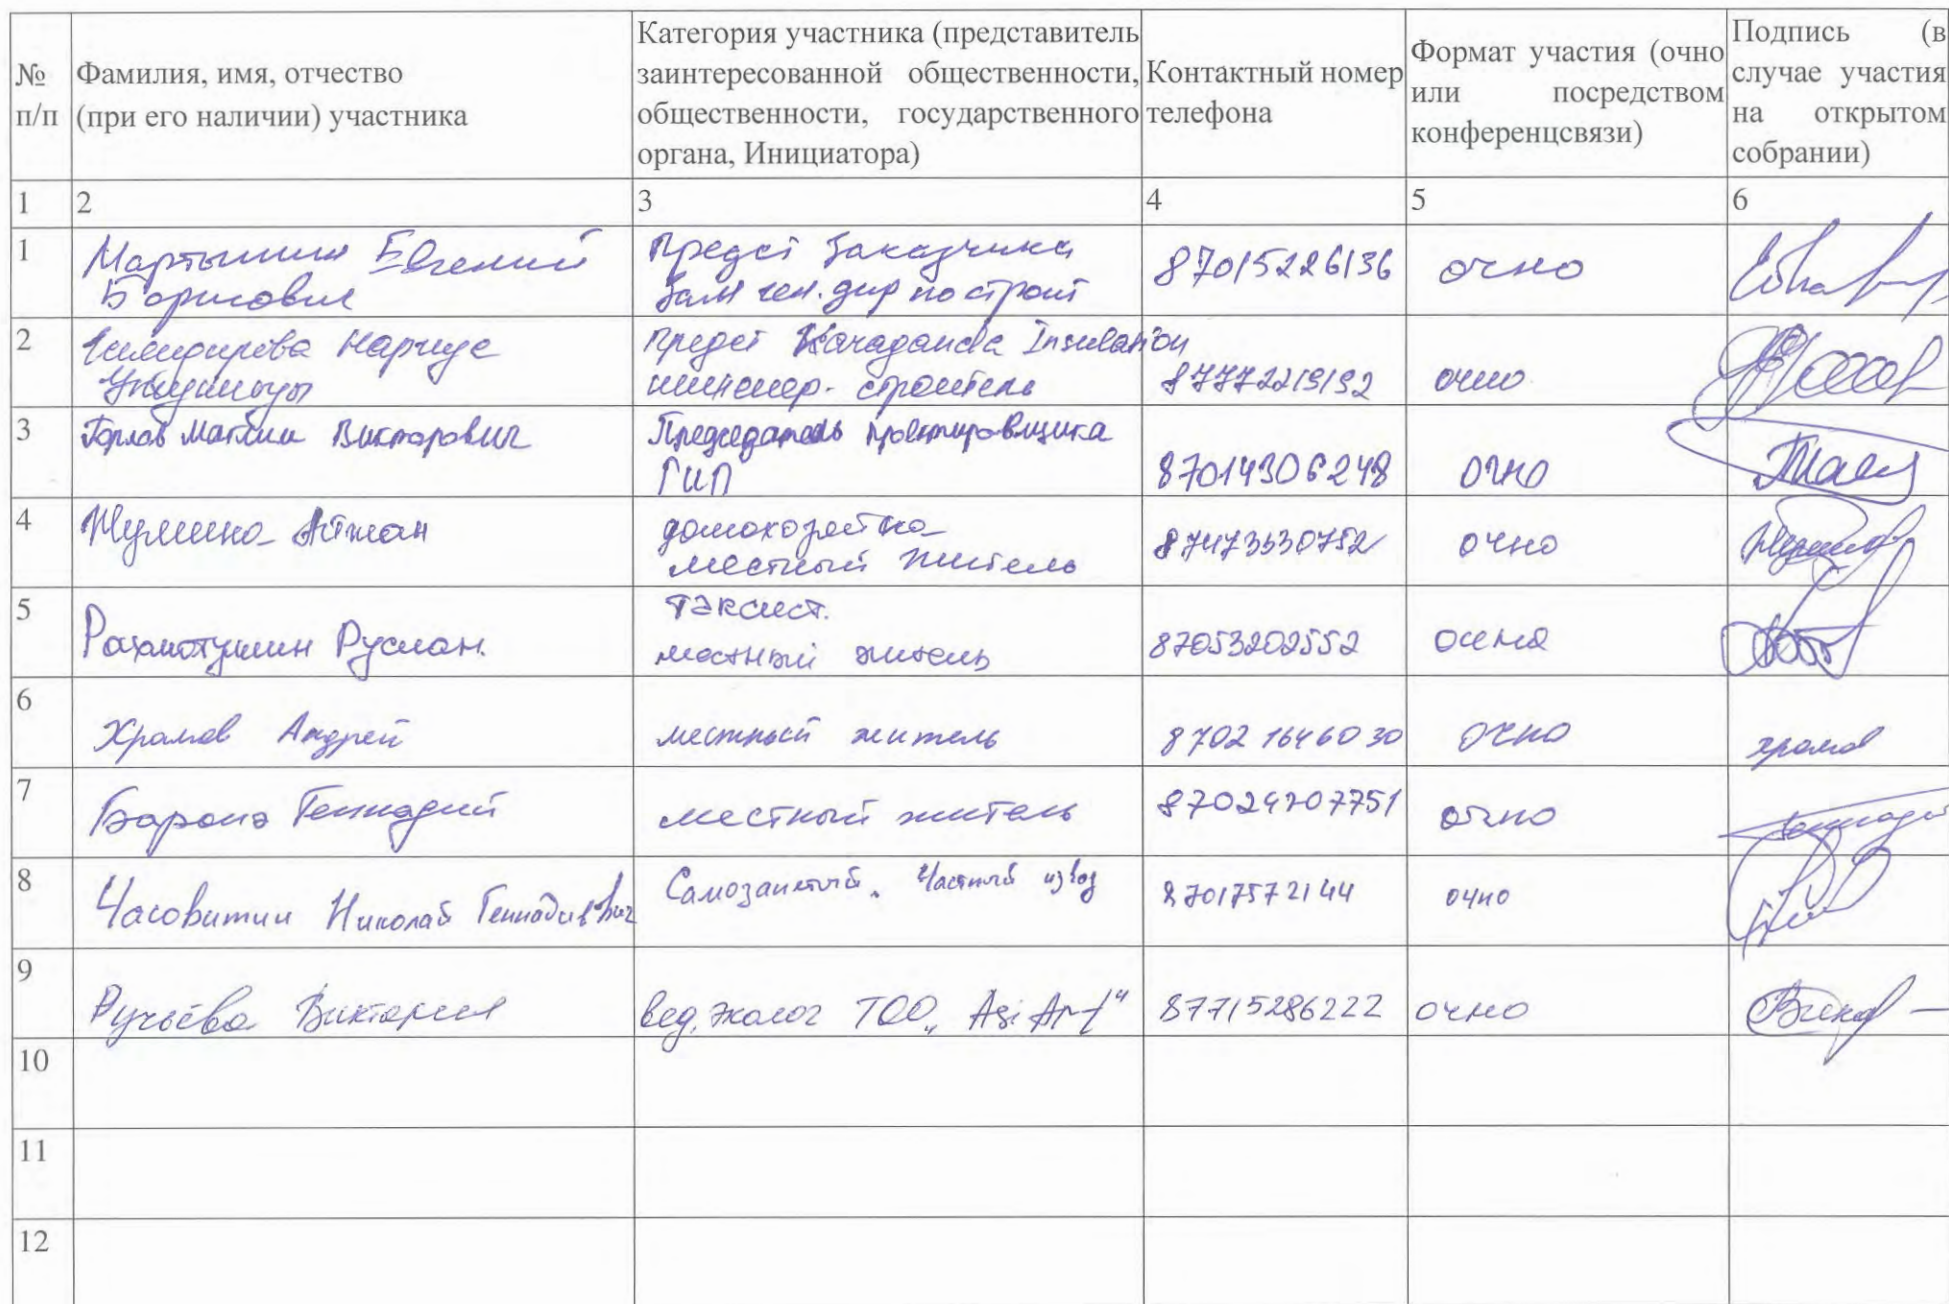 № п/п
Фамилия, имя, отчество
(при его наличии) участника
Категория участника (представитель
заинтересованной общественности,
общественности, государственного
органа, Инициатора)
Контактный номер
телефона
Формат участия (очно
или посредством
конференцсвязи)
Подпись (в
случае участия
на открытом
собрании)
1 2 3 4 5 6
1
Мартынин Евгений
Борисович
Предст Заказчика
Зам ген. дир по строит
87015226136
очно
2
Предст Karaganda Insulation
инженер-строитель
87772219192
очно
3
Горлов Максим Викторович
проектировщика
ГИП
87014306248
очно
4
домохозяйка
местный житель
очно
5
Руслан.
таксист.
местный житель
87053202552
очно
6
Храмов Андрей
местный житель
8702 1646030
очно
храмов
7
Геннадий
местный житель
очно
8
Часовитин Николай Геннадиевич
Самозанятый. Частный извоз
87017572144
очно
9
Ручьёва Виктория
вед. эколог ТОО „
87715286222
очно
10
11
12